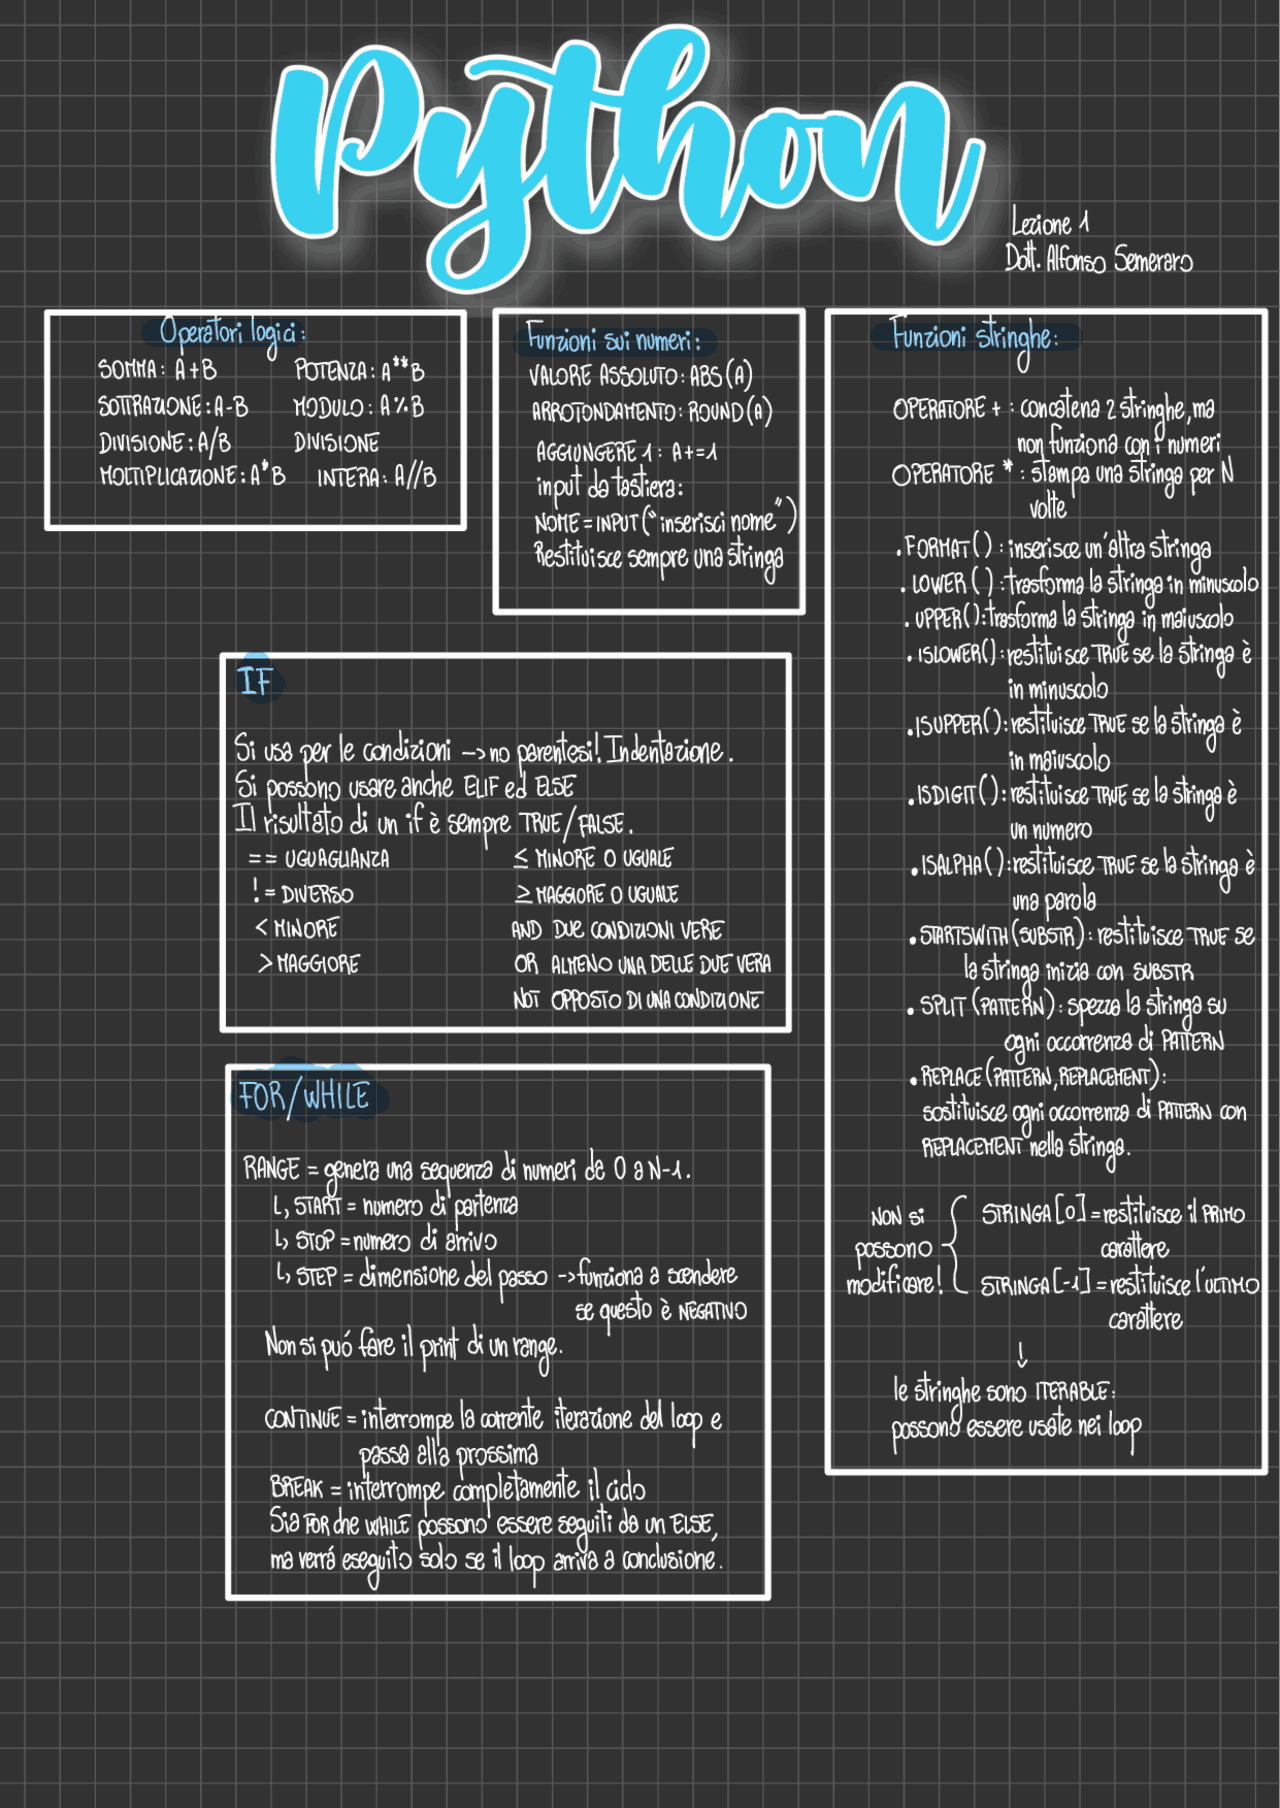 Python
Lezione 1
Dott. Alfonso Semeraro
Operatori logici:
SOMMA: A+B
POTENZA: A**B
SOTTRAZIONE: A-B
MODULO: A%B
DIVISIONE: A/B
DIVISIONE
MOLTIPLICAZIONE: A*B
INTERA: A//B
Funzioni sui numeri:
VALORE ASSOLUTO: ABS(A)
ARROTONDAMENTO: ROUND(A)
AGGIUNGERE 1: A+=1
input da tastiera:
NOME=INPUT("inserisci nome")
Restituisce sempre una stringa
IF
Si usa per le condizioni -> no parentesi! Indentazione.
Si possono usare anche ELIF ed ELSE
Il risultato di un if è sempre TRUE/FALSE.
== UGUAGLIANZA
!= DIVERSO
< MINORE
> MAGGIORE
≤ MINORE O UGUALE
≥ MAGGIORE O UGUALE
AND DUE CONDIZIONI VERE
OR ALMENO UNA DELLE DUE VERA
NOT OPPOSTO DI UNA CONDIZIONE
FOR/WHILE
RANGE = genera una sequenza di numeri da 0 a N-1.
↳ START = numero di partenza
↳ STOP = numero di arrivo
↳ STEP = dimensione del passo -> funziona a scendere
se questo è NEGATIVO
Non si può fare il print di un range.
CONTINUE = interrompe la corrente iterazione del loop e
passa alla prossima
BREAK = interrompe completamente il ciclo
Sia FOR che WHILE possono essere seguiti da un ELSE,
ma verrá eseguito solo se il loop arriva a conclusione.
Funzioni stringhe:
OPERATORE + : concatena 2 stringhe, ma
non funziona con i numeri
OPERATORE * : stampa una stringa per N
volte
.FORMAT() : inserisce un'altra stringa
.LOWER() : trasforma la stringa in minuscolo
.UPPER(): trasforma la stringa in maiuscolo
.ISLOWER(): restituisce TRUE se la stringa è
in minuscolo
.ISUPPER(): restituisce TRUE se la stringa è
in maiuscolo
.ISDIGIT(): restituisce TRUE se la stringa è
un numero
.ISALPHA(): restituisce TRUE se la stringa è
una parola
.STARTSWITH(SUBSTR): restituisce TRUE se
la stringa inizia con SUBSTR
.SPLIT(PATTERN): spezza la stringa su
ogni occorrenza di PATTERN
.REPLACE(PATTERN,REPLACEMENT):
sostituisce ogni occorrenza di PATTERN con
REPLACEMENT nella stringa.
NON si
possono
modificare!
STRINGA[0] = restituisce il PRIMO
carattere
STRINGA[-1] = restituisce l'ULTIMO
carattere
↓
le stringhe sono ITERABLE:
possono essere usate nei loop